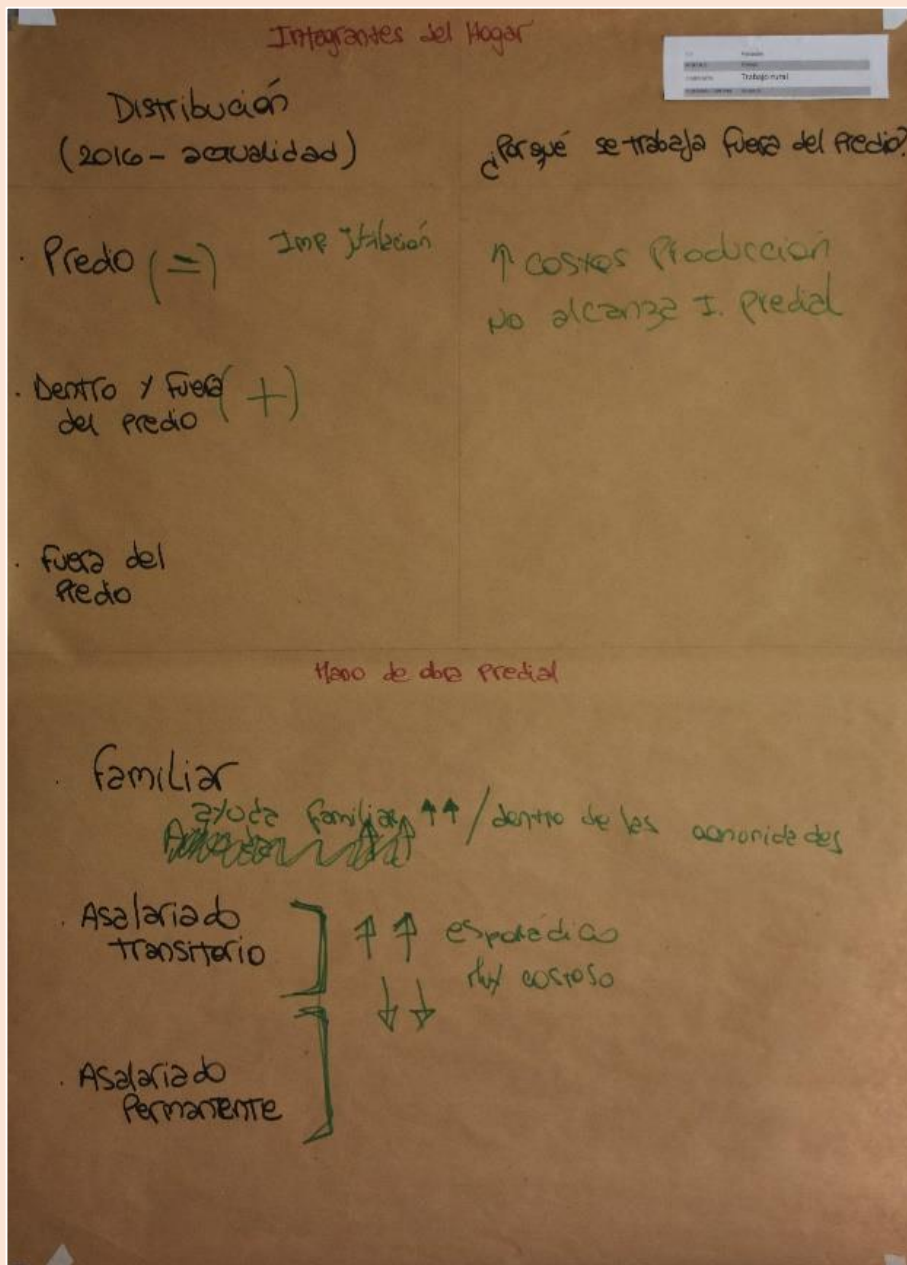 Integrantes del Hogar
Trabajo rural
Distribución
(2016 - actualidad)
¿Porqué se trabaja fuera del predio?
. Predio (=) Imp
↑ costos Producción
No alcanza I. predial
. Dentro y Fuera (+)
del predio
. Fuera del
Predio
Mano de obra predial
. Familiar
ayuda familiar ↑↑ / dentro de las
. Asalariado
transitorio
↑ ↑ esporádico
Muy costoso
↓ ↓
. Asalariado
Permanente